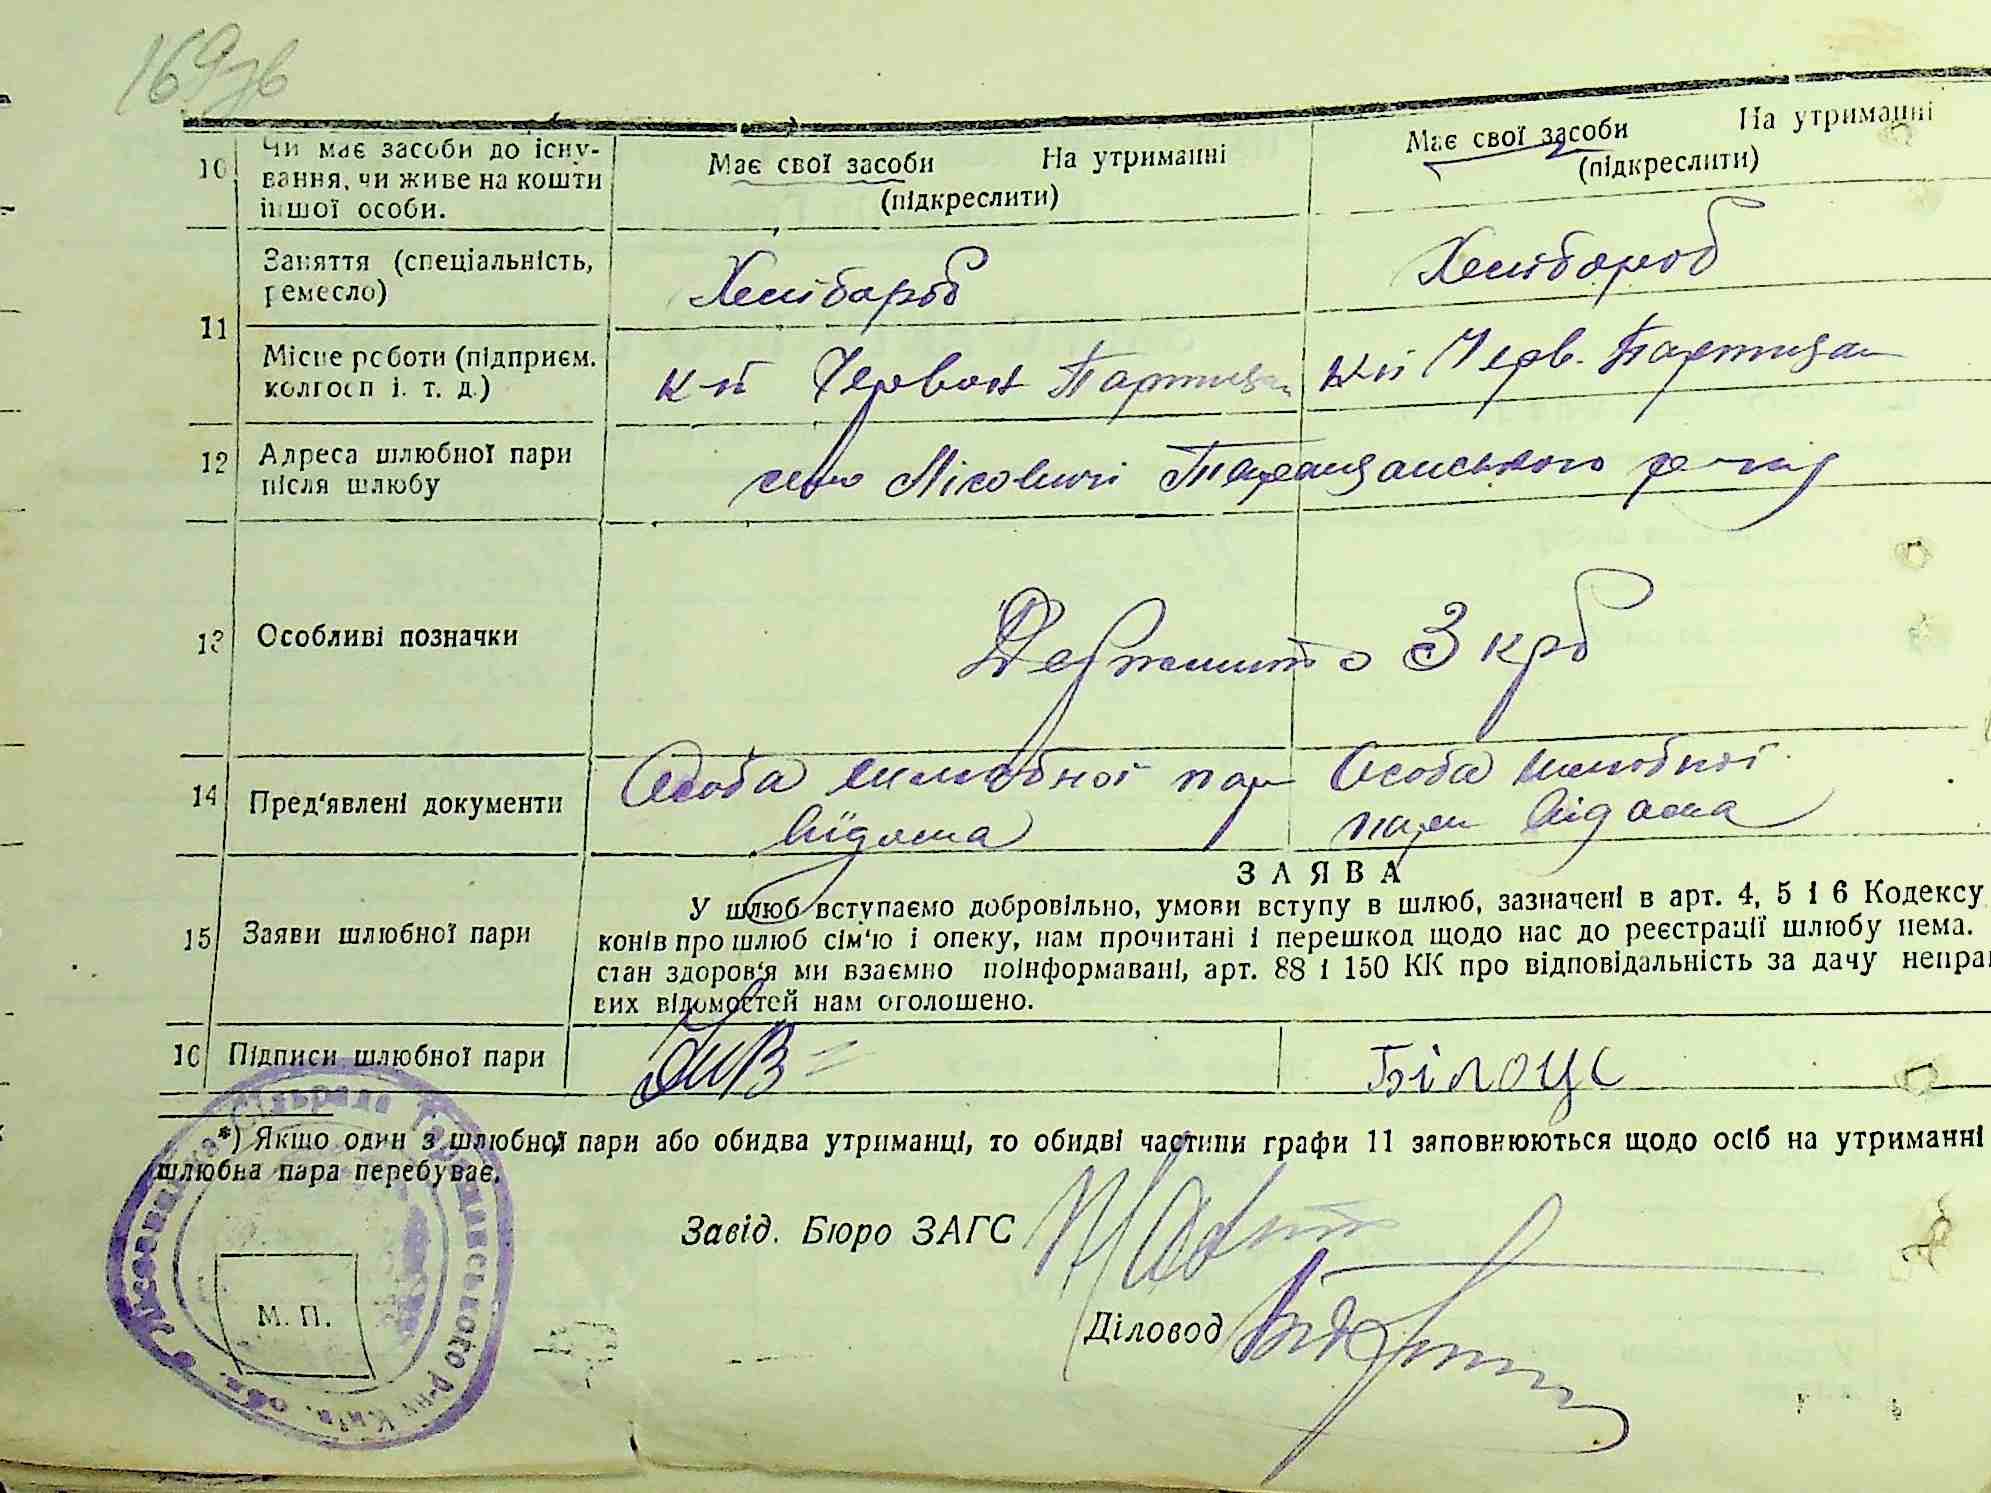 169зв
10 Чи має засоби до існу-
вання, чи живе на кошти
іншої особи.
Має свої засоби На утриманні
(підкреслити)
Має свої засоби На утриманні
(підкреслити)
11 Заняття (спеціальність,
ремесло)
Хлібороб
Хлібороб
Місце роботи (підприєм.
колгосп і. т. д.)
к-п Червон Партизан
к-п Черв. Партизан
12 Адреса шлюбної пари
після шлюбу
село Лісовичі Таращанського району
13 Особливі позначки
Держмито 3 крб
14 Пред'явлені документи
Особа шлюбної пари
відома
Особа шлюбної
пари відома
15 Заяви шлюбної пари
ЗАЯВА
У шлюб вступаємо добровільно, умови вступу в шлюб, зазначені в арт. 4, 5 і 6 Кодексу
конів про шлюб сім'ю і опеку, нам прочитані і перешкод щодо нас до реєстрації шлюбу нема.
стан здоров'я ми взаємно поінформавані, арт. 88 і 150 КК про відповідальність за дачу неправ
вих відомостей нам оголошено.
16 Підписи шлюбної пари
Білоус
*) Якщо один з шлюбної пари або обидва утриманці, то обидві частини графи 11 заповнюються щодо осіб на утриманні
шлюбна пара перебуває.
Завід. Бюро ЗАГС
Діловод
М. П.
Лісовицька Сільрада Таращанського р-ну Київ. обл.